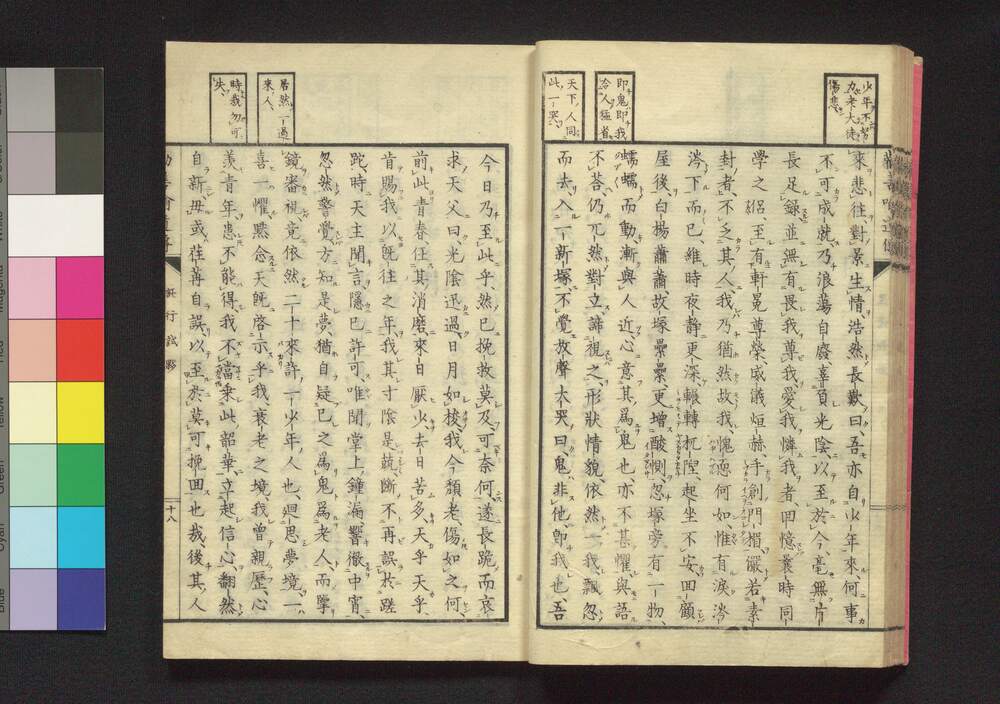 少年不努
力老大徒
傷悲
來悲往對景生情浩然長歎曰吾亦自少年來何事
不可成就乃浪蕩自廢辜負光陰以至於今毫無片
長足錄並無有畏我尊我愛我憐我者回憶曩時同
學之侶至有軒冕尊榮威儀烜赫手創門楣儼若素
封者不乏其人我乃猶然故我愧恧何如惟有淚涔
涔下而已維時夜靜更深輾轉杌隉起坐不安回顧
屋後白楊蕭蕭故塚纍纍更增酸惻忽塚旁有一物
蠕蠕而動漸與人近心意其爲鬼也亦不甚懼與語
不答仍兀然對立諦視之形狀情貌依然一我飄忽
而去入一新塚不覺放聲大哭曰鬼非他卽我也吾
卽鬼卽我
令人猛省
天下人同
此一哭
今日乃至此乎然已挽救莫及可奈何遂長跪而哀
求天父曰光陰迅過日月如梭我今頹老傷如之何
前此青春任其消磨來日厭少去日苦多天乎天乎
肯賜我以旣往之年我其寸陰是競斷不再誤於蹉
跎時天主聞言隱已許可唯聞堂上鐘漏響徹中宵
忽然警覺方知是夢猶自疑已之爲鬼爲老人而擥
鏡審視竟依然二十來許一少年人也廻思夢境一
喜一懼黙念天旣啓示乎我衰老之境我曾親歷心
羨青年患不能得我不當乘此韶華立起信心翻然
自新毋或荏苒自誤以至於莫可挽回也哉後其人
居然一過
來人
時哉勿可
失
十八